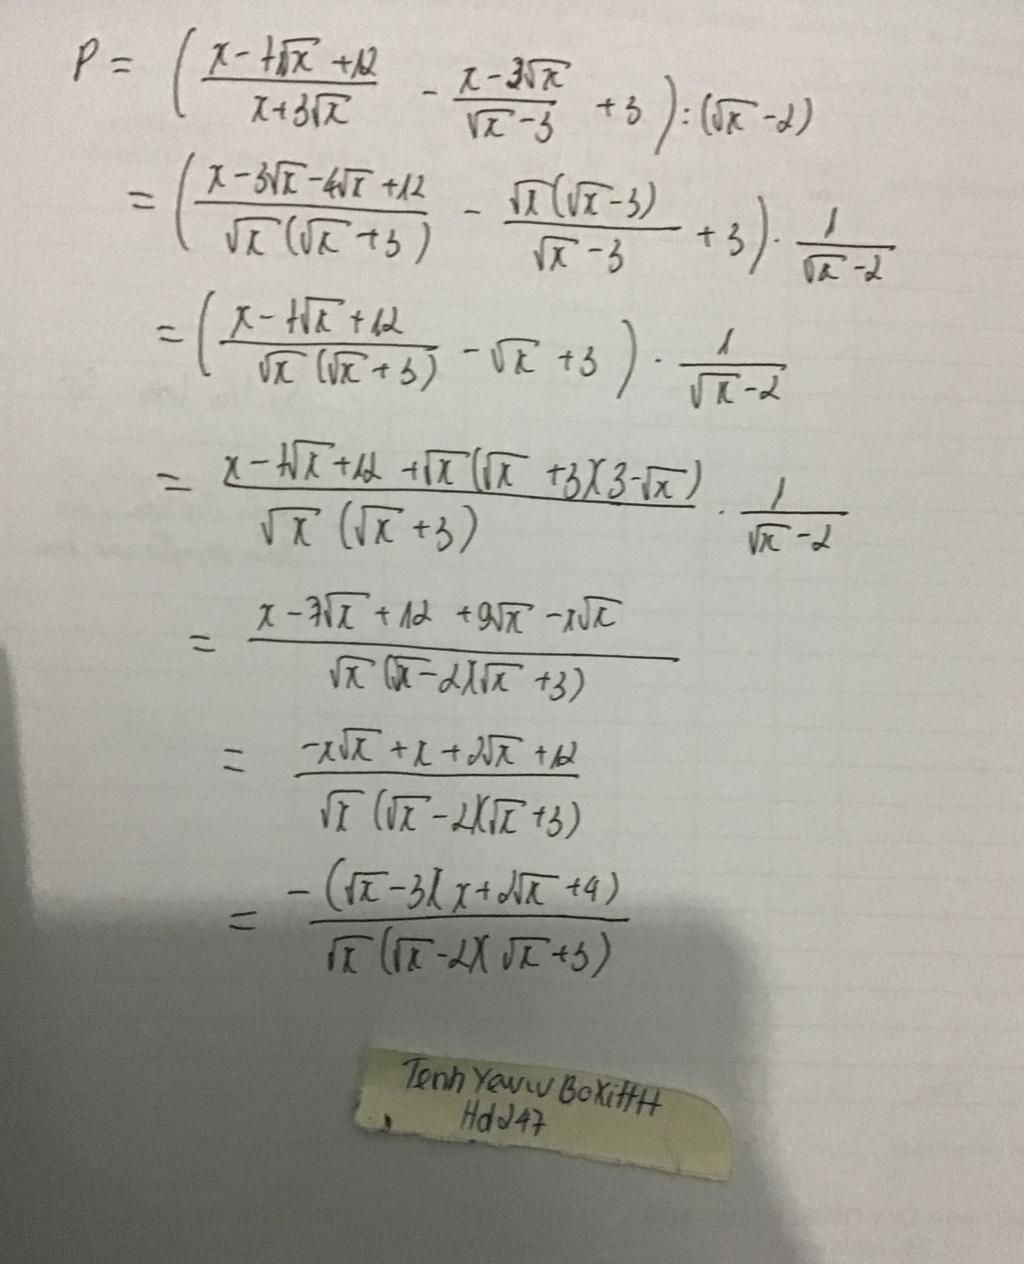 P = ( (x - 7√x + 12)/(x + 3√x) - (x - 3√x)/(√x - 3) + 3 ) : (√x - 2)
= ( (x - 3√x - 4√x + 12)/(√x (√x + 3)) - (√x (√x - 3))/(√x - 3) + 3 ) . 1/(√x - 2)
= ( (x - 7√x + 12)/(√x (√x + 3)) - √x + 3 ) . 1/(√x - 2)
= (x - 7√x + 12 + √x (√x + 3)(3 - √x))/(√x (√x + 3)) . 1/(√x - 2)
= (x - 7√x + 12 + 9√x - x√x)/(√x (√x - 2)(√x + 3))
= (-x√x + x + 2√x + 12)/(√x (√x - 2)(√x + 3))
= (-(√x - 3)(x + 2√x + 4))/(√x (√x - 2)(√x + 3))
Tenh Yavw BoKiHH
Hd247